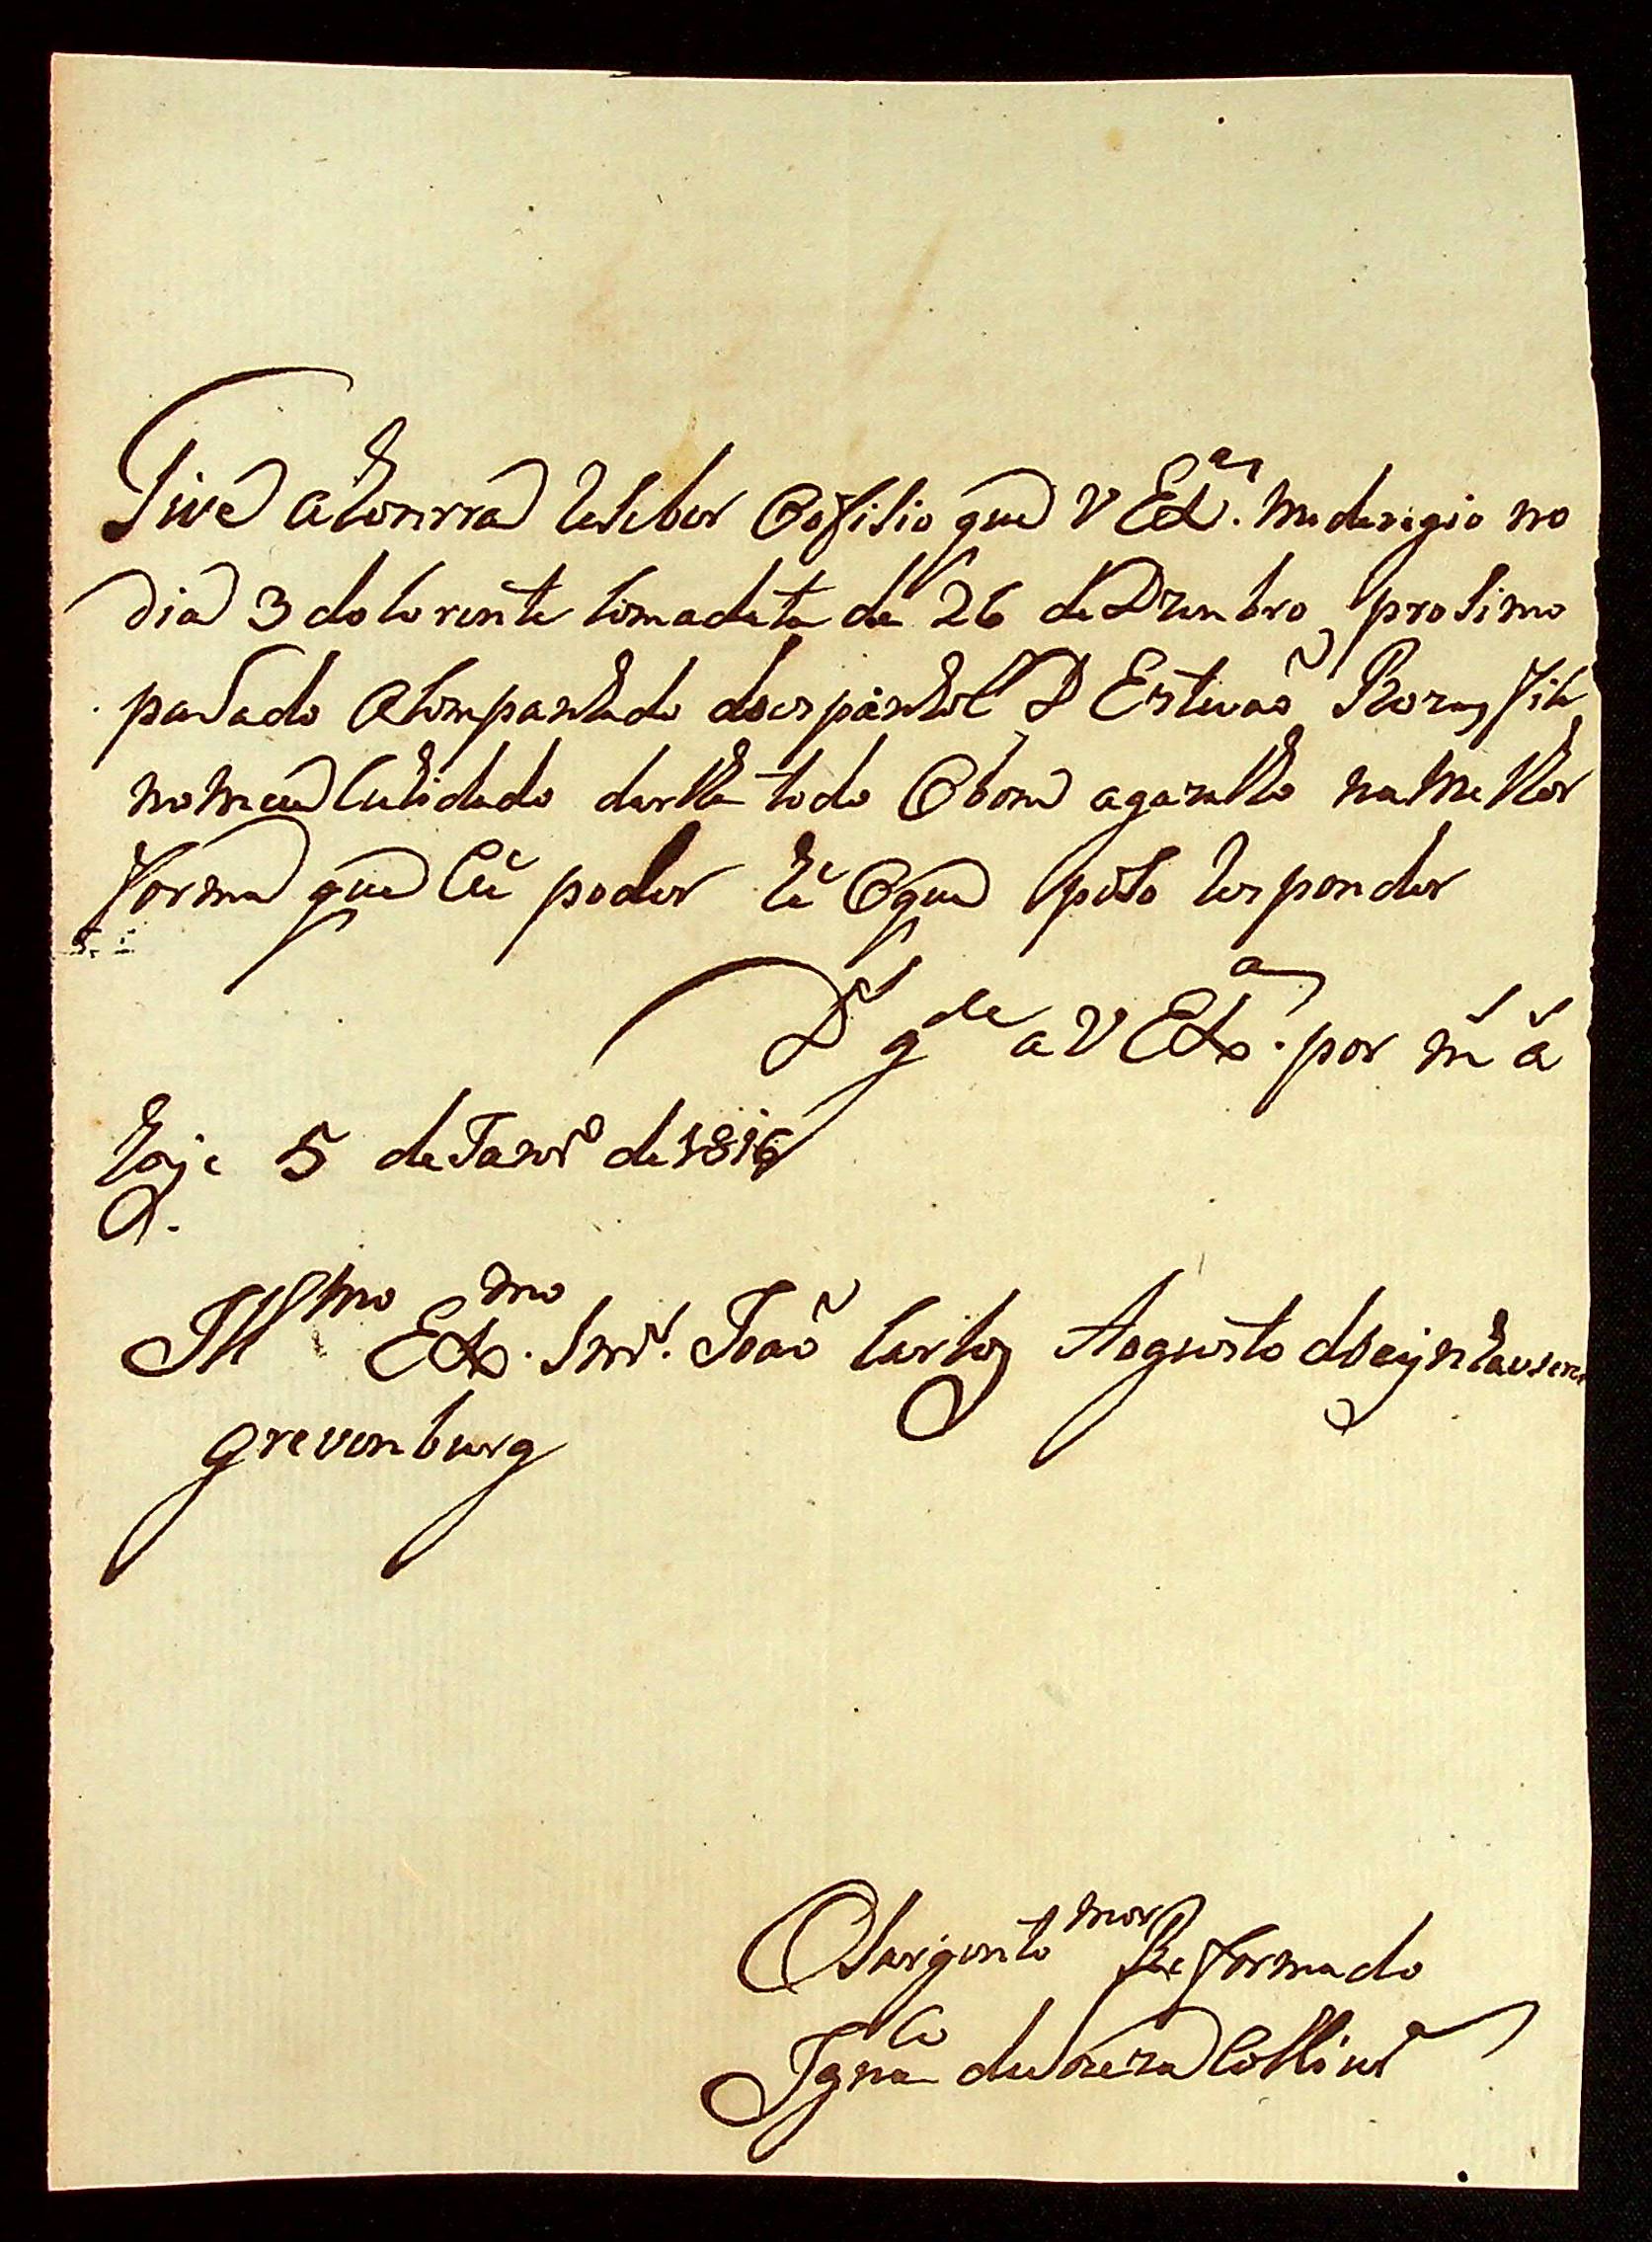 Tive ahonrra reseber Oofisio que V Exª. mederigio no
dia 3 do corente comadeta de 26 de Dzembro prosimo
pasado acompanhado doespanhol D Estevaõ Roza, fik
nomeu cuhidado darlhe todo Obom agazalho na melhor
forma que eu poder he Oque poso responder
Dˢ gᵈᵉ a V Exª. por mˢ aˢ
hoje 5 de Janrº de 1816
Illᵐᵒ Exᵐᵒ. Snrˢ. Joaõ Carlos Aogusto
grevenburg
OSargento mor Reformado
Ignᶜⁱᵒ